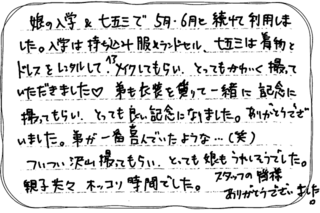 娘の入学&七五三で5月・6月と続けて利用しま
した。入学は持ち込み服&ランドセル、七五三は着物と
ドレスをレンタルして、ヘアメイクしてもらい、とってもかわいく撮って
いただきました♡ 弟も衣装を借って一緒に記念に
撮ってもらい、とっても良い記念になりました。ありがとうござ
いました。弟が一番喜んでいたような…(笑)
ついつい沢山撮ってもらい、とっても娘もうれしそうでした。
親子共々ホッコリ時間でした。
スタッフの皆様
ありがとうございました。